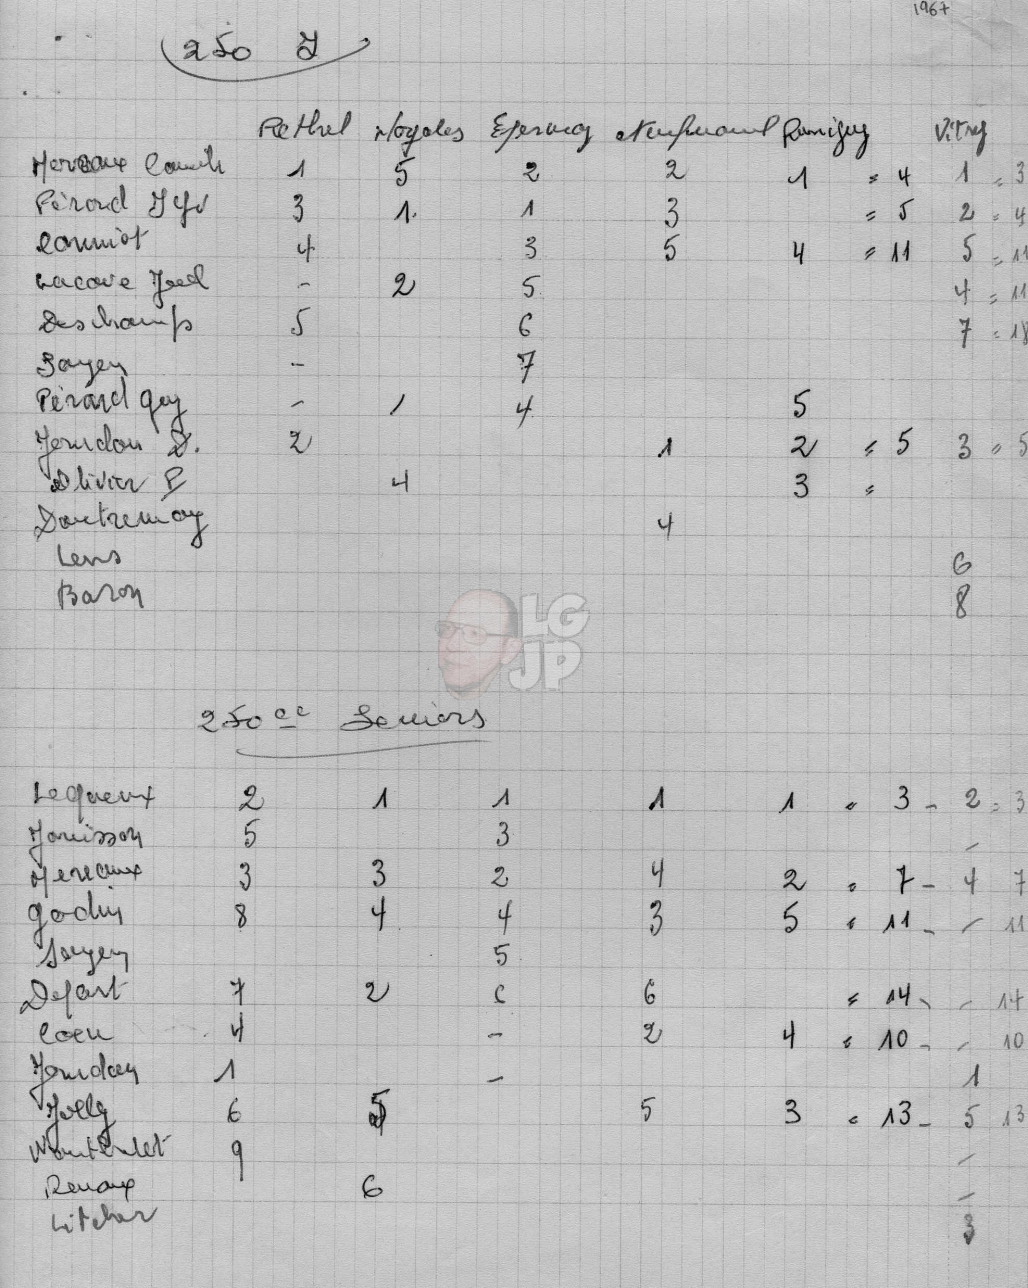 1967
250 J
Rethel Noyales Epernay Neufmanil Rumigny Vitry
Hereaux 1 5 2 2 1 = 4 1 = 3
Pérard JYv 3 1. 1 3 = 5 2 = 4
Cornuiot 4 3 5 4 = 11 5 = 11
Lacave Joel - 2 5 4 = 11
Deschamps 5 6 7 = 18
Sayen - 7
Pérard Guy - / 4 5
Jourdan D. 2 1 2 = 5 3 = 5
Olivier P 4 3 =
Dautremay 4
Lens 6
Baron 8
LG
JP
250 cc Seniors
Lequeux 2 1 1 1 1 = 3 - 2 = 3
Jouisson 5 3 /
Hereaux 3 3 2 4 2 = 7 - 4 7
Godin 8 4 4 3 5 = 11 - / 11
Sayen 5
Defart 7 2 6 6 = 14 - - 14
Coeu 4 - 2 4 = 10 - / 10
Jourdan 1 - 1
Jolly 6 5 5 3 = 13 - 5 13
9 /
Renaux 6 /
Litchar 3